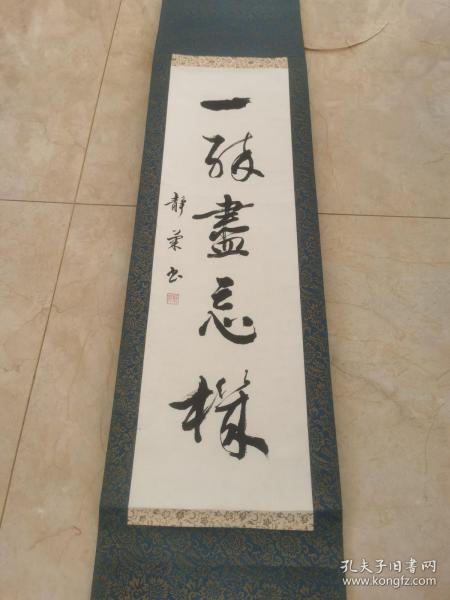 一酔盡忘機
静葉书
孔夫子旧书网
www.kongfz.com